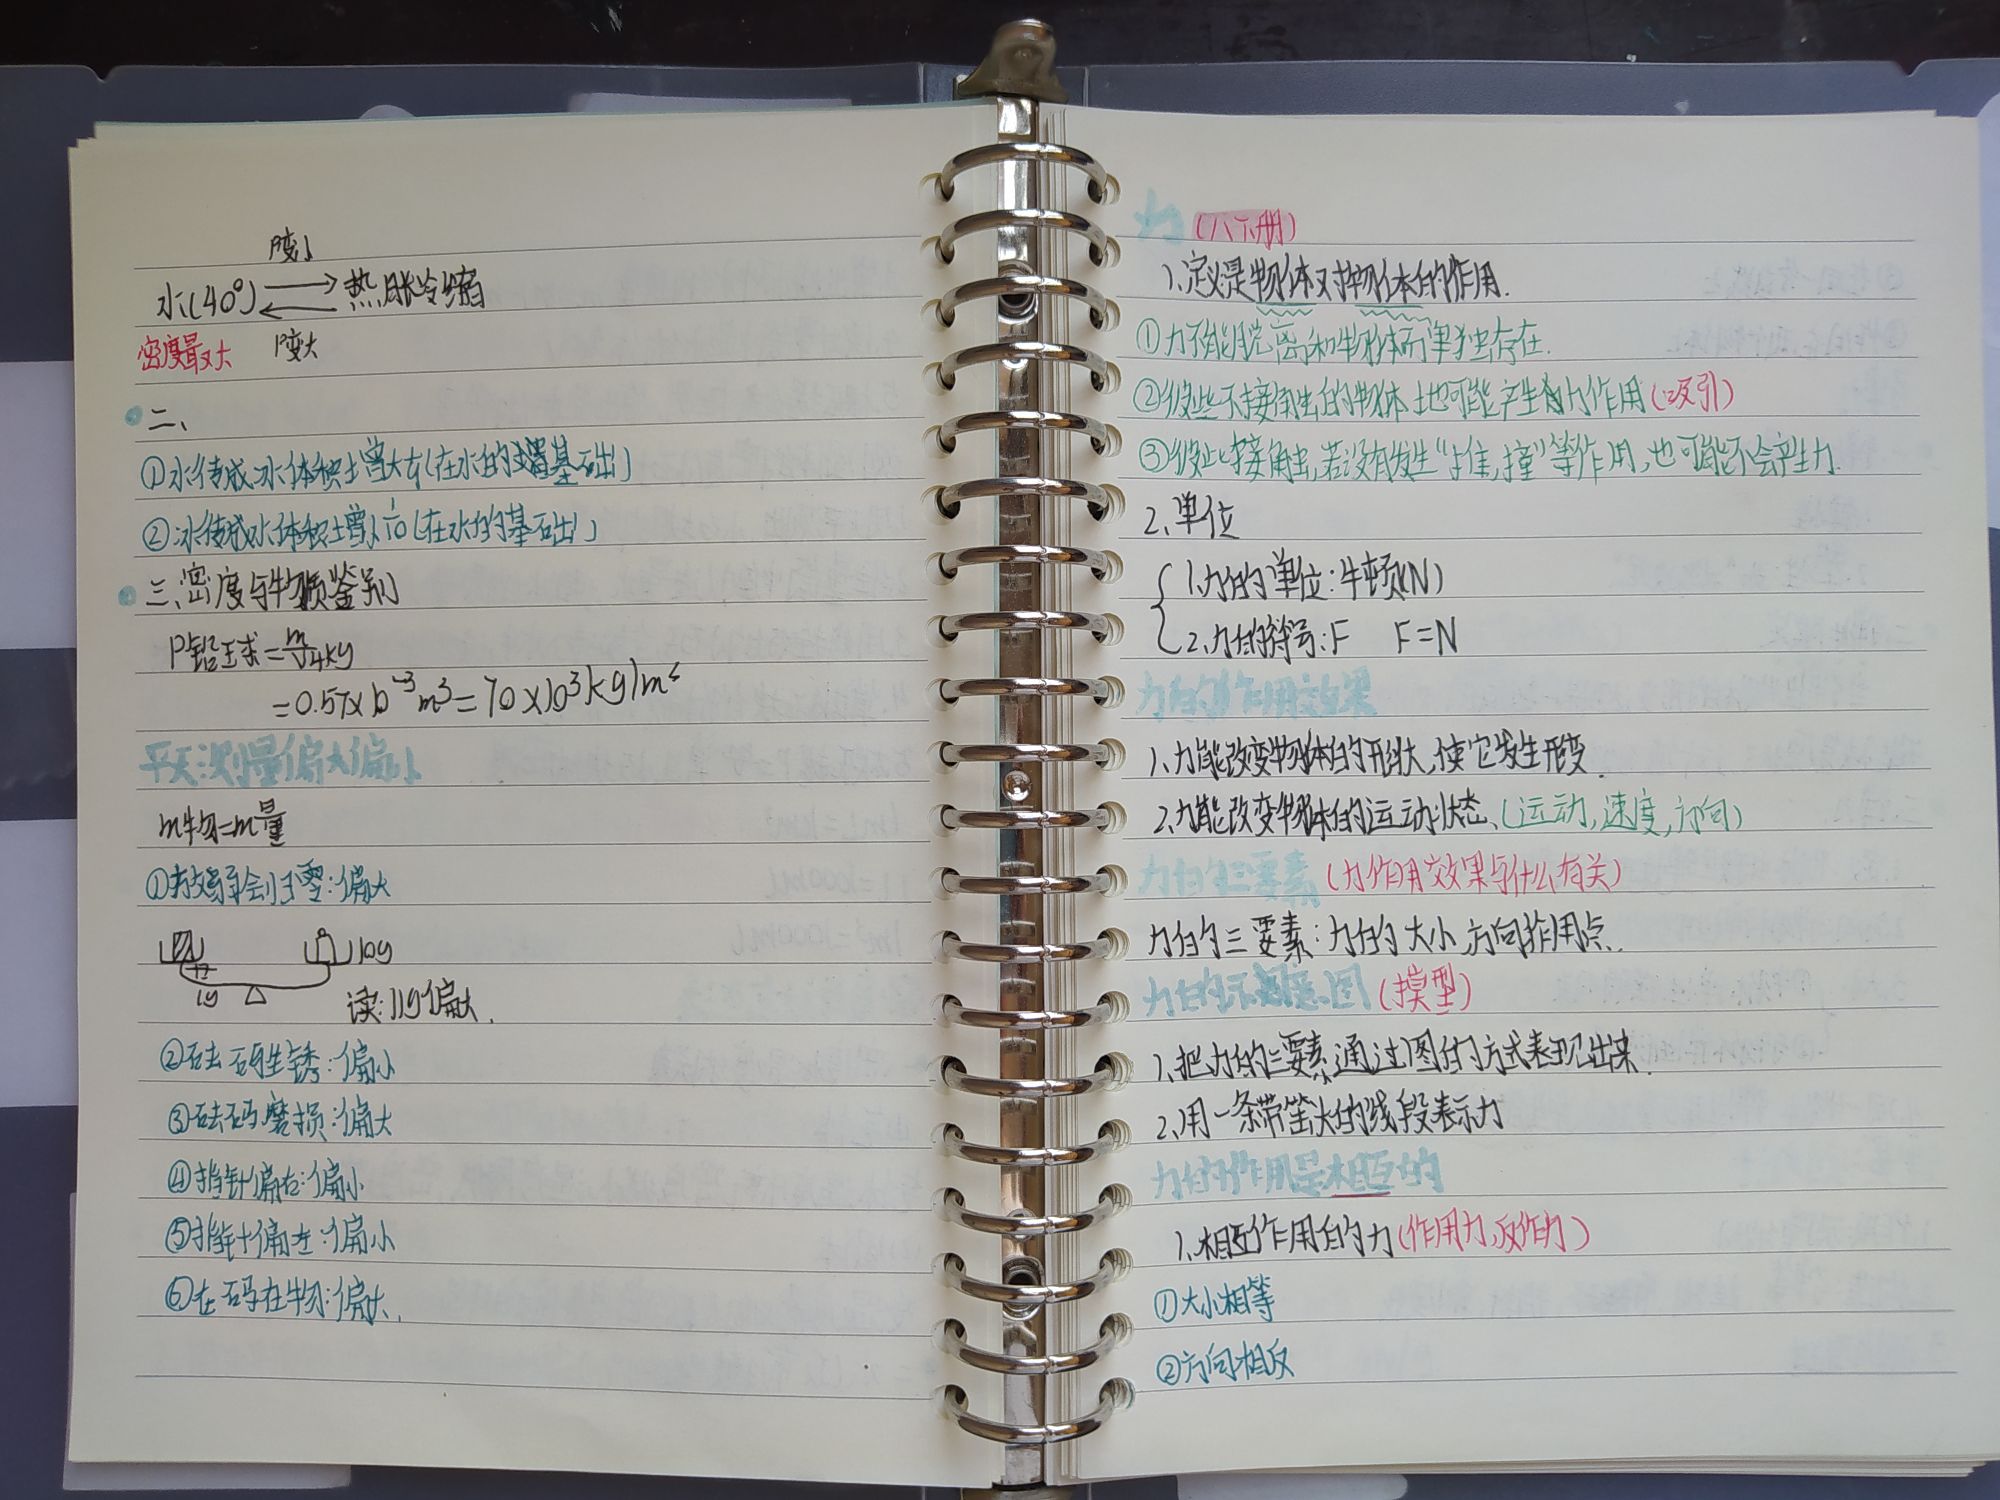 ρ变小
水(40°) 热胀冷缩
密度最大 ρ变大
二、
①水传成冰体积增大(在水的基础)
②冰传成水体积增小1/10(在水的基础)
三、密度与物质鉴别
ρ铅球=m/4kg
=0.57×10⁻³m³=70×10³kg/m³
平天测量偏大偏小
m物=m量
①游码归零:偏大
10g
1g
读:11g偏大.
②砝码生锈:偏小
③砝码磨损:偏大
④指针偏右:偏小
⑤指针偏左:偏小
⑥左码右物:偏大.
力(八下册)
1.定义是物体对物体的作用.
①力不能脱离和物体而单独存在.
②彼些不接触的物体也可能产生力作用(吸引)
③彼此接触,若没有发生“推,撞”等作用,也可能不会产生力.
2.单位
1.力的单位:牛顿(N)
2.力的符号:F F=N
力的作用效果
1.力能改变物体的形状,使它发生形变.
2.力能改变物体的运动状态、(运动,速度,方向)
力的三要素(力作用效果与什么有关)
力的三要素:力的大小方向作用点.
力的示意图(模型)
1.把力的三要素通过图的方式表现出来.
2.用一条带箭头的线段表示力
力的作用是相互的
1.相互作用的力(作用力,反作力)
①大小相等
②方向相反